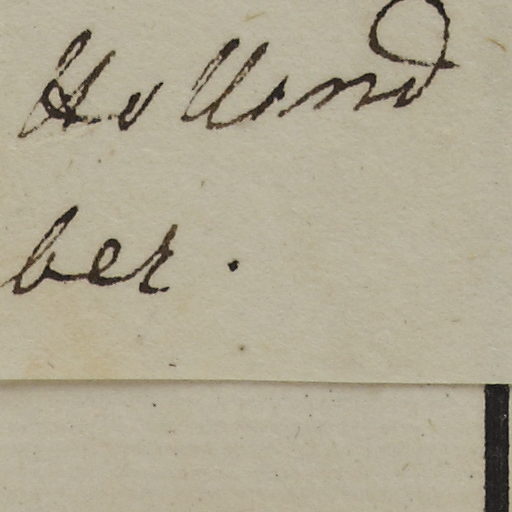 Holland
ber.